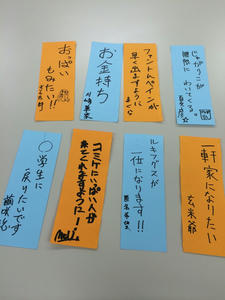 おっぱい
もみたい!!
お金持ち
ファントムペインが
早く出ますように
まくら
じゃがりこが
無限に
わいてくる。
○学生に
戻りたいです
コミケにいっぱい人が
来てくれますように!
ルキフグスが
一位になります!!
匿名希望
一軒家になりたい
玄米爺